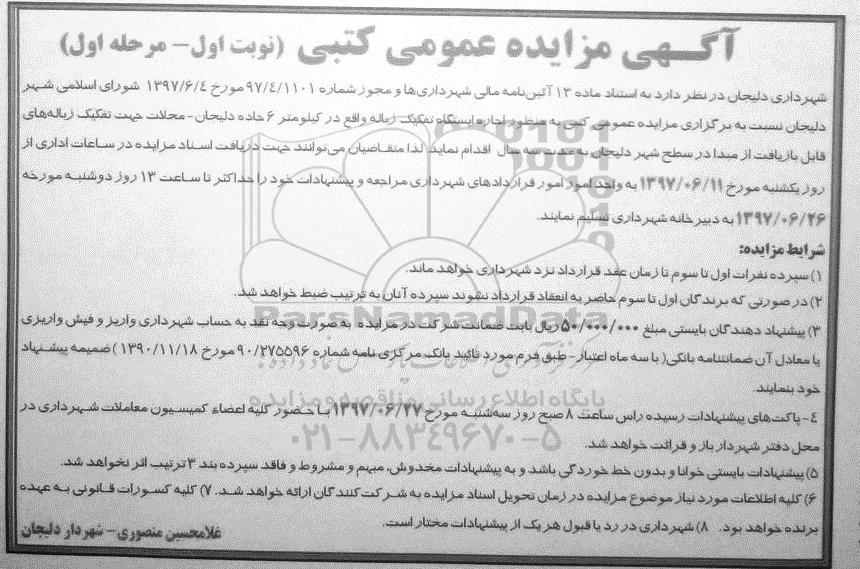 آگهی مزایده عمومی کتبی (نوبت اول- مرحله اول)
شهرداری دلیجان در نظر دارد به استناد ماده ۱۳ آئین‌نامه مالی شهرداری‌ها و مجوز شماره ۹۷/٤/۱۱۰۱ مورخ ۱۳۹۷/۶/٤ شورای اسلامی شهر
دلیجان نسبت به برگزاری مزایده عمومی کتبی به منظور اجاره ایستگاه تفکیک زباله واقع در کیلومتر ۶ جاده دلیجان - محلات جهت تفکیک زباله‌های
قابل بازیافت از مبدا در سطح شهر دلیجان به مدت سه سال اقدام نماید لذا متقاضیان می‌توانند جهت دریافت اسناد مزایده در ساعات اداری از
روز یکشنبه مورخ ۱۳۹۷/۰۶/۱۱ به واحد امور امور قراردادهای شهرداری مراجعه و پیشنهادات خود را حداکثر تا ساعت ۱۳ روز دوشنبه مورخه
۱۳۹۷/۰۶/۲۶ به دبیرخانه شهرداری تسلیم نمایند.
شرایط مزایده:
۱) سپرده نفرات اول تا سوم تا زمان عقد قرارداد نزد شهرداری خواهد ماند.
۲) در صورتی که برندگان اول تا سوم حاضر به انعقاد قرارداد نشوند سپرده آنان به ترتیب ضبط خواهد شد.
ParsNamadData
۳) پیشنهاد دهندگان بایستی مبلغ ۵۰/۰۰۰/۰۰۰ ریال بابت ضمانت شرکت در مزایده به صورت وجه نقد به حساب شهرداری واریز و فیش واریزی
یا معادل آن ضمانتنامه بانکی( با سه ماه اعتبار- طبق فرم مورد تائید بانک مرکزی نامه شماره ۹۰/۲۷۵۵۹۶ مورخ ۱۳۹۰/۱۱/۱۸ ) ضمیمه پیشنهاد
خود بنمایند.
پایگاه اطلاع رسانی مناقصه و مزایده
٤- پاکت‌های پیشنهادات رسیده راس ساعت ۸ صبح روز سه‌شنبه مورخ ۱۳۹۷/۰۶/۲۷ با حضور کلیه اعضاء کمیسیون معاملات شهرداری در
محل دفتر شهردار باز و قرائت خواهد شد.
۰۲۱-۸۸۳۴۹۶۷۰-۵
۵) پیشنهادات بایستی خوانا و بدون خط خوردگی باشد و به پیشنهادات مخدوش، مبهم و مشروط و فاقد سپرده بند ۳ ترتیب اثر نخواهد شد.
۶) کلیه اطلاعات مورد نیاز موضوع مزایده در زمان تحویل اسناد مزایده به شرکت‌کنندگان ارائه خواهد شد. ۷) کلیه کسورات قانونی به عهده
برنده خواهد بود. ۸) شهرداری در رد یا قبول هر یک از پیشنهادات مختار است.
غلامحسین منصوری- شهردار دلیجان